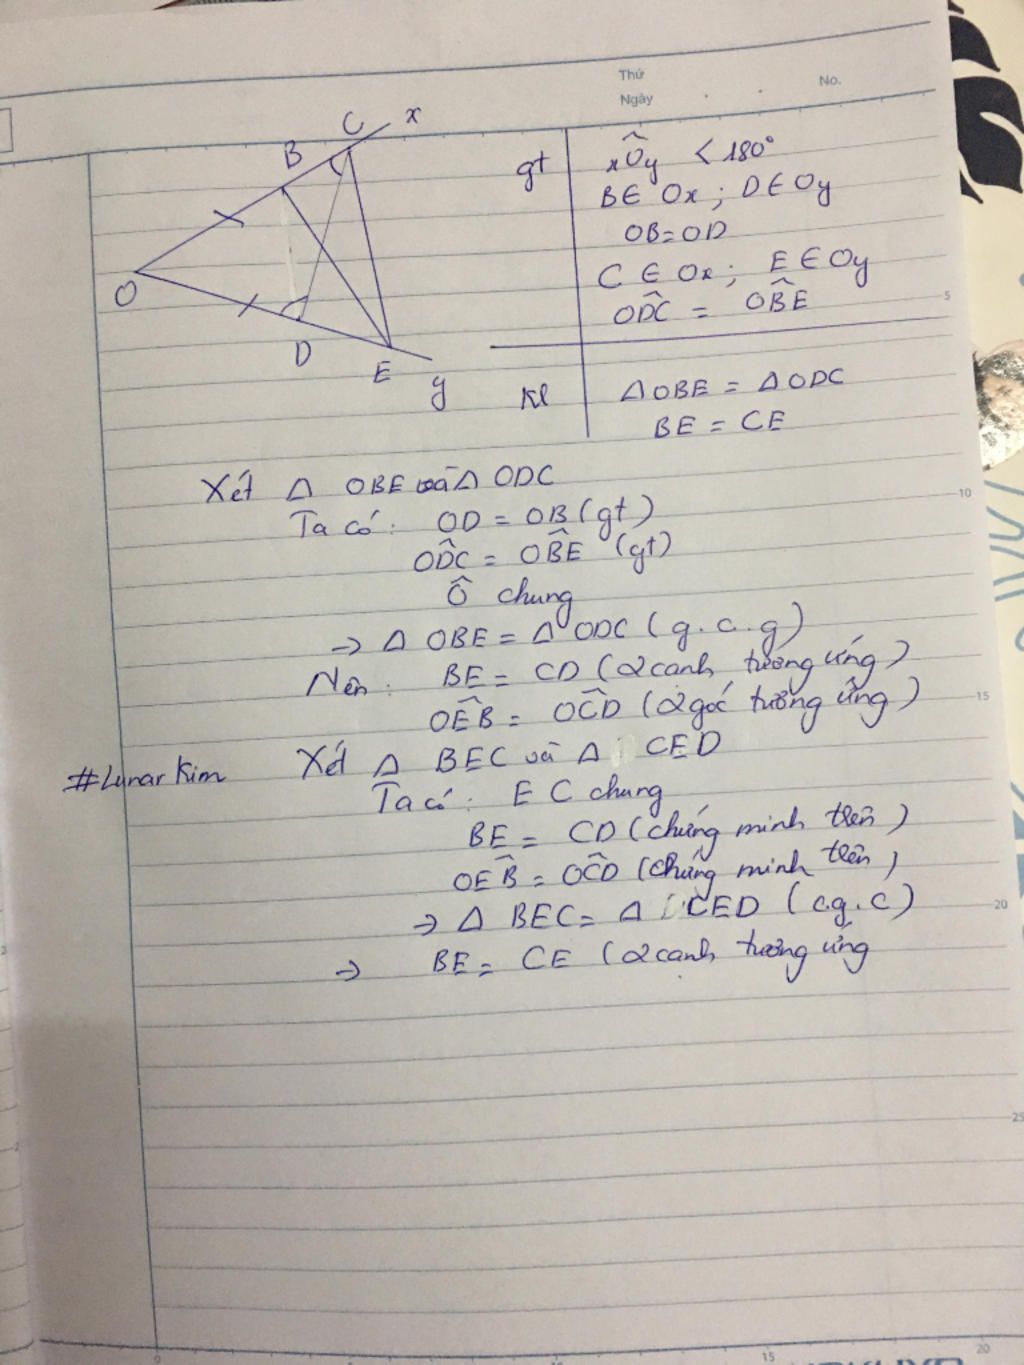 Thứ
No.
Ngày
C x
B
O
D
E
y
gt
xÔy < 180°
B ∈ Ox ; D ∈ Oy
OB = OD
C ∈ Ox ; E ∈ Oy
OD̂C = OB̂E
5
Kl
Δ OBE = Δ ODC
BE = CE
Xét Δ OBE và Δ ODC
10
Ta có : OD = OB (gt)
OD̂C = OB̂E (gt)
Ô chung
→ Δ OBE = Δ ODC (g.c.g)
Nên : BE = CD (2 cạnh tương ứng)
OÊB = OĈD (2 góc tương ứng)
15
#Lunar Kim
Xét Δ BEC và Δ CED
Ta có : EC chung
BE = CD (chứng minh trên)
OÊB = OĈD (chứng minh trên)
→ Δ BEC = Δ CED (c.g.c)
20
→ BE = CE (2 cạnh tương ứng
25
0
15
20